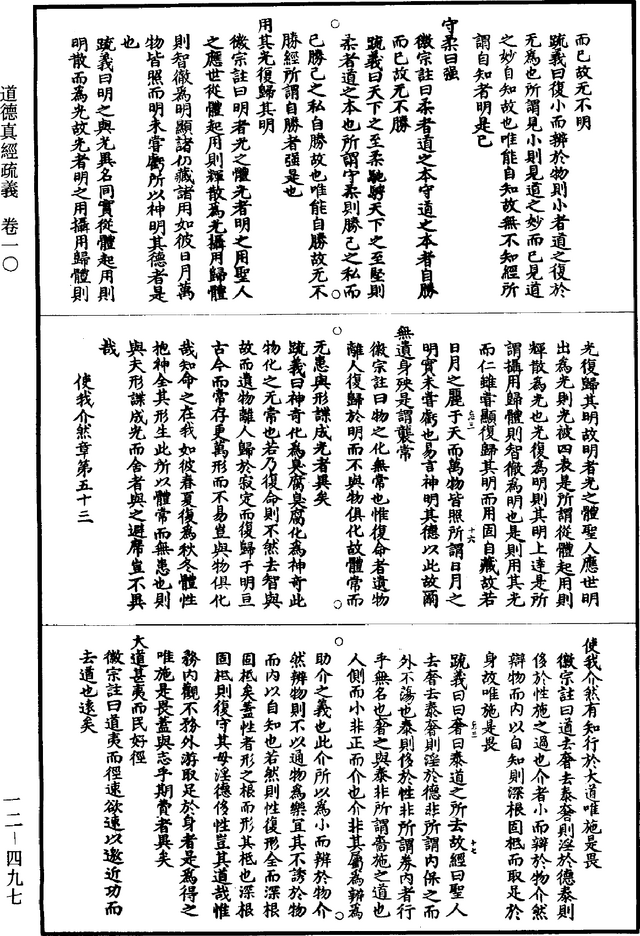 而已故无不明
疏義曰復小而辨於物則小者道之復於
无為也所謂見小則見道之妙而已見道
之妙自知故也唯能自知故無不知經所
謂自知者明是已
守柔曰強
徽宗註曰柔者道之本守道之本者自勝
而已故无不勝
疏義曰天下之至柔馳騁天下之至堅則
柔者道之本也所謂守柔則勝己之私而
已勝己之私自勝故也唯能自勝故无不
勝經所謂自勝者強是也
用其光復歸其明
徽宗註曰明者光之體光者明之用聖人
之應世從體起用則輝散為光攝用歸體
則智徹為明顯諸仍藏諸用如彼日月萬
物皆照而明未嘗虧所以神明其德者是
也
疏義曰明之與光異名同實從體起用則
明散而為光故光者明之用攝用歸體則
光復歸其明故明者光之體聖人應世明
出為光則光被四表是所謂從體起用則
輝散為光也光復為明則其明上達是所
謂攝用歸體則智徹為明也是則用其光
而仁雖嘗顯復歸其明而用固自藏故若
日月之麗于天而萬物皆照所謂日月之
明實未嘗虧也易言神明其德以此故爾
無遺身殃是謂襲常
徽宗註曰物之化無常也惟復命者遺物
離人復歸於明而不與物俱化故體常而
无患與形謀成光者異矣
疏義曰神奇化為臭腐臭腐化為神奇此
物化之无常也若乃復命則不然去智與
故而遺物離人歸於寂定而復歸于明亘
古今而常存更萬形而不易豈與物俱化
哉知命之在我如彼春夏復為秋冬體性
抱神全其形生此所以體常而無患也則
與夫形謀成光而舍者與之避席豈不異
哉
使我介然章第五十三
使我介然有知行於大道唯施是畏
徽宗註曰道去奢去泰奢則淫於德泰則
侈於性施之過也介者小而辨於物介然
辯物而內以自知則深根固柢而取足於
身故唯施是畏
疏義曰曰奢曰泰道之所去故經曰聖人
去奢去泰奢則淫於德非所謂內保之而
外不蕩也泰則侈於性非所謂券內者行
乎無名也奢之與泰非所謂嗇施之道也
人側而小非正而介也介非其屬為辨為
助介之義也此介所以為小而辨於物介
然辨物則不以通物為樂宜其不誘於物
而內以自知也若然則性復形全而深根
固柢矣蓋性者形之根而形其柢也深根
固柢則復守其母淫德侈性豈其道哉惟
務內觀不務外游取足於身者是為得之
唯施是畏蓋與志乎期費者異矣
大道甚夷而民好徑
徽宗註曰道夷而徑速欲速以邀近功而
去道也遠矣
道德真經疏義　卷一〇
一二－四九七